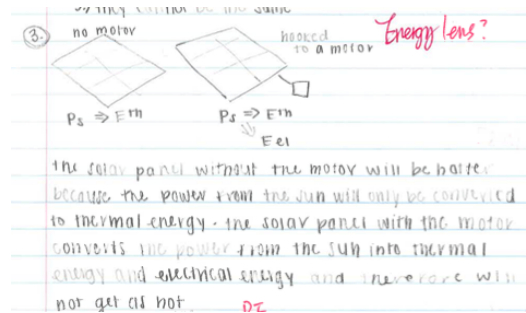 they cannot be the same
3.
no motor
hooked
to a motor
Energy lens?
Ps ⇒ Eth
Ps ⇒ Eth
⇓
Eel
the solar panel without the motor will be hotter
because the power from the sun will only be converted
to thermal energy. the solar panel with the motor
converts the power from the sun into thermal
energy and electrical energy and therefore will
not get as hot